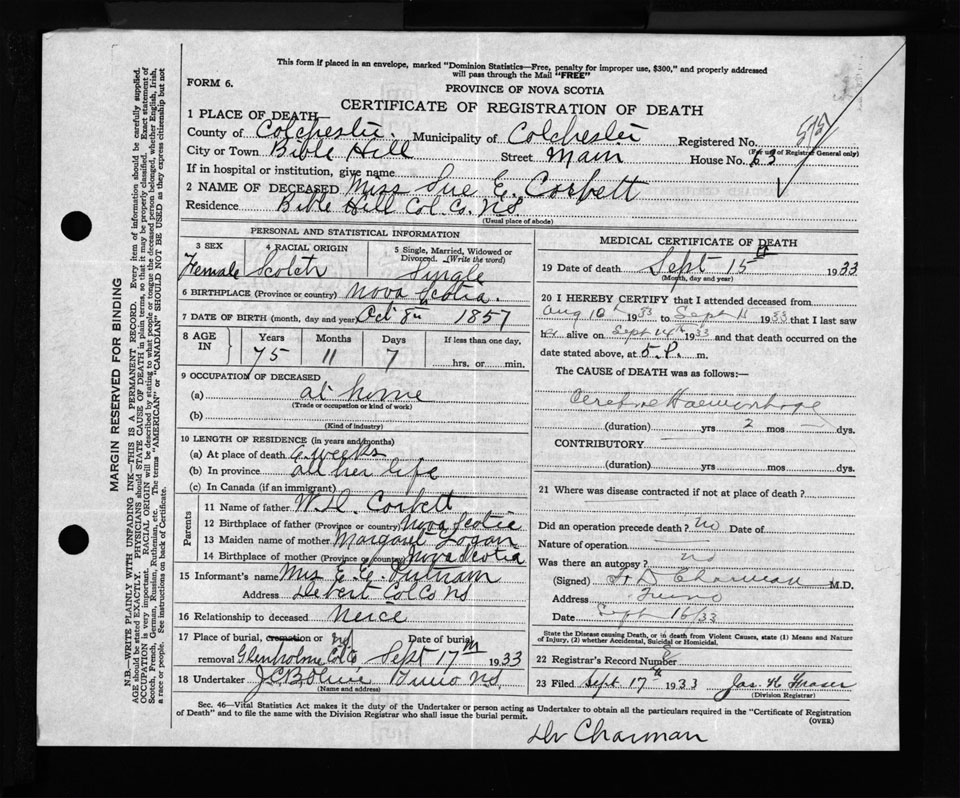 This form if placed in an envelope, marked "Dominion Statistics—Free, penalty for improper use, $300," and properly addressed
will pass through the Mail "FREE"
FORM 6.
PROVINCE OF NOVA SCOTIA
CERTIFICATE OF REGISTRATION OF DEATH
1 PLACE OF DEATH
County of Colchester. Municipality of Colchester Registered No.
(For use of Registrar General only)
City or Town Bible Hill Street Main House No. 63
If in hospital or institution, give name
2 NAME OF DECEASED Miss Sue E. Corbett
Residence Bible Hill Col. Co. N.S.
(Usual place of abode)
PERSONAL AND STATISTICAL INFORMATION
3 SEX Female
4 RACIAL ORIGIN Scotch
5 Single, Married, Widowed or Divorced. (Write the word) Single
6 BIRTHPLACE (Province or country) Nova Scotia.
7 DATE OF BIRTH (month, day and year) Oct 8th 1857
8 AGE IN Years Months Days If less than one day,
75 11 7 hrs. or min.
9 OCCUPATION OF DECEASED
(a) at home
(Trade or occupation or kind of work)
(b)
(Kind of industry)
10 LENGTH OF RESIDENCE (in years and months)
(a) At place of death 6 weeks
(b) In province all her life
(c) In Canada (if an immigrant)
Parents
11 Name of father W. H. Corbett
12 Birthplace of father (Province or country) Nova Scotia
13 Maiden name of mother Margaret Logan
14 Birthplace of mother (Province or country) Nova Scotia
15 Informant's name Mrs E. E. Putnam
Address Debert Col Co NS
16 Relationship to deceased Neice
17 Place of burial, cremation or removal Glenholme Col. Co NS Date of burial Sept 17th 1933
18 Undertaker Truro NS
(Name and address)
MEDICAL CERTIFICATE OF DEATH
19 Date of death Sept 15th 1933
(Month, day and year)
20 I HEREBY CERTIFY that I attended deceased from
Aug 10th 1933 to Sept 15 1933 that I last saw
her alive on Sept 14th 1933 and that death occurred on the
date stated above, at 5. P. m.
The CAUSE of DEATH was as follows:—
Haemorrhage
(duration) yrs 2 mos dys.
CONTRIBUTORY
(duration) yrs. mos. dys.
21 Where was disease contracted if not at place of death?
Did an operation precede death? no Date of
Nature of operation
Was there an autopsy? no
(Signed) Charman M.D.
Address Truro
Date Sept 16/33
State the Disease causing Death, or in death from Violent Causes, state (1) Means and Nature
of Injury, (2) whether Accidental, Suicidal or Homicidal.
22 Registrar's Record Number
23 Filed Sept 17th 1933 Jas. H Fraser
(Division Registrar)
Sec. 46—Vital Statistics Act makes it the duty of the Undertaker or person acting as Undertaker to obtain all the particulars required in the "Certificate of Registration
of Death" and to file the same with the Division Registrar who shall issue the burial permit.
(OVER)
Dr Charman
MARGIN RESERVED FOR BINDING
N.B.—WRITE PLAINLY WITH UNFADING INK—THIS IS A PERMANENT RECORD. Every item of information should be carefully supplied.
AGE should be stated EXACTLY. PHYSICIANS should STATE CAUSE OF DEATH in plain terms, so that it may be properly classified. Exact statement of
OCCUPATION is very important. RACIAL ORIGIN will be described by stating to what people or tongue the deceased person belonged, whether English, Irish,
Scotch, French, German, Russian, Ruthenian, etc. The terms "AMERICAN" or "CANADIAN" SHOULD NOT BE USED as they express citizenship but not
a race or people. See instructions on back of Certificate.